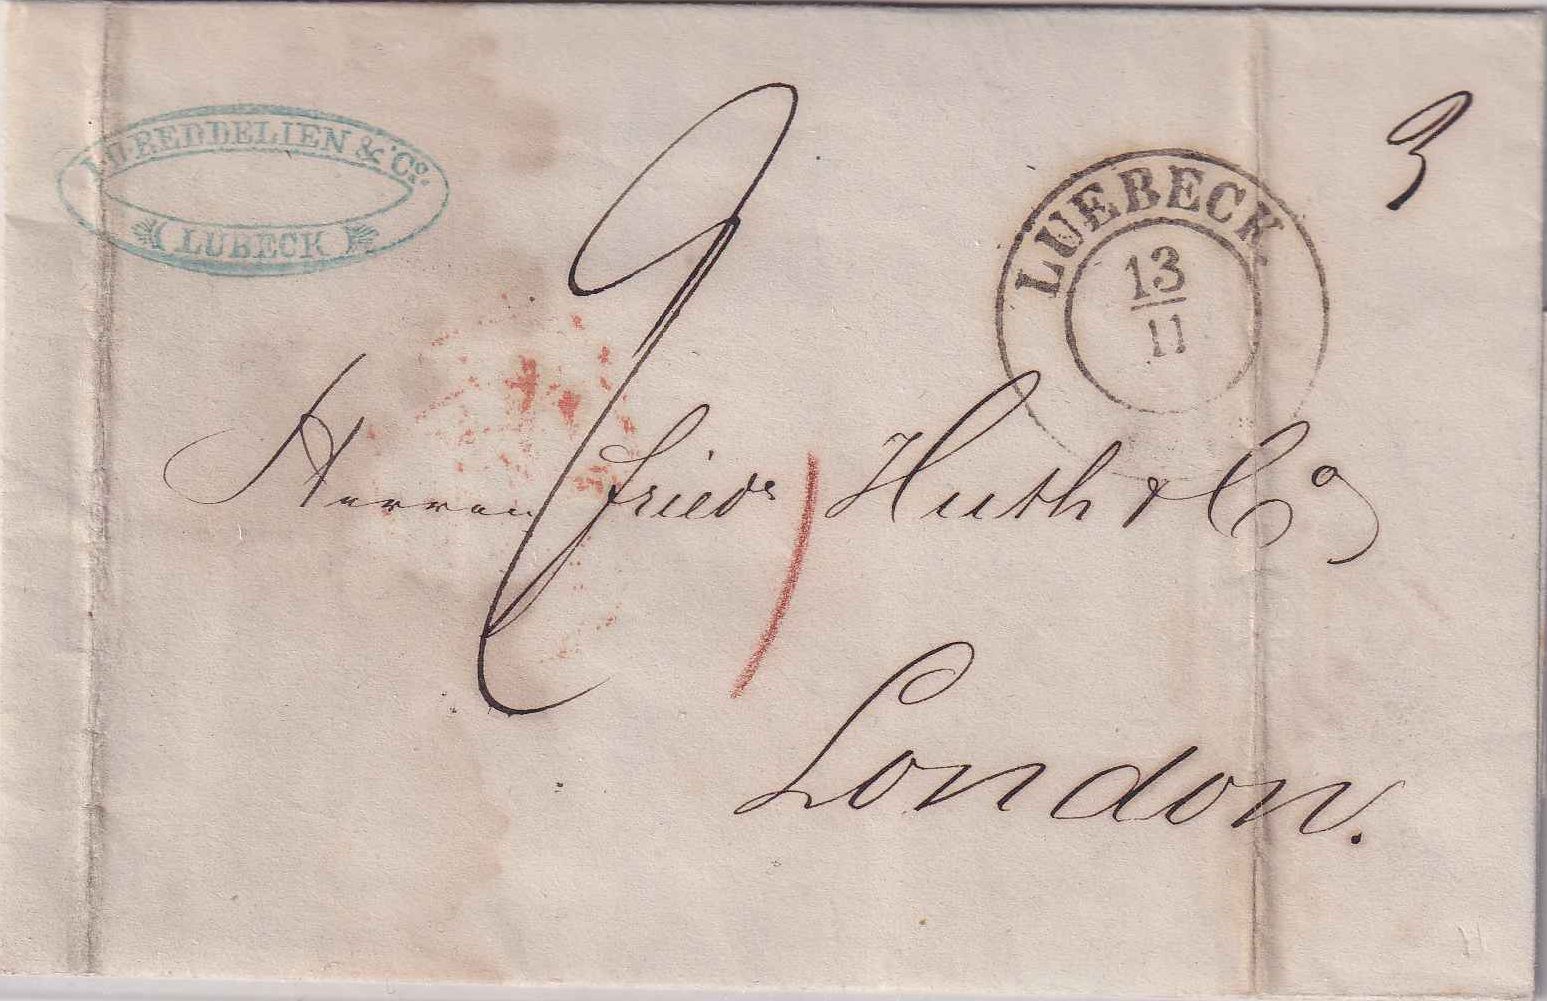 REDDELIEN & Co.
LUBECK
LUEBECK
13
11
3
2
Herren Friedr Huth & Co
London.